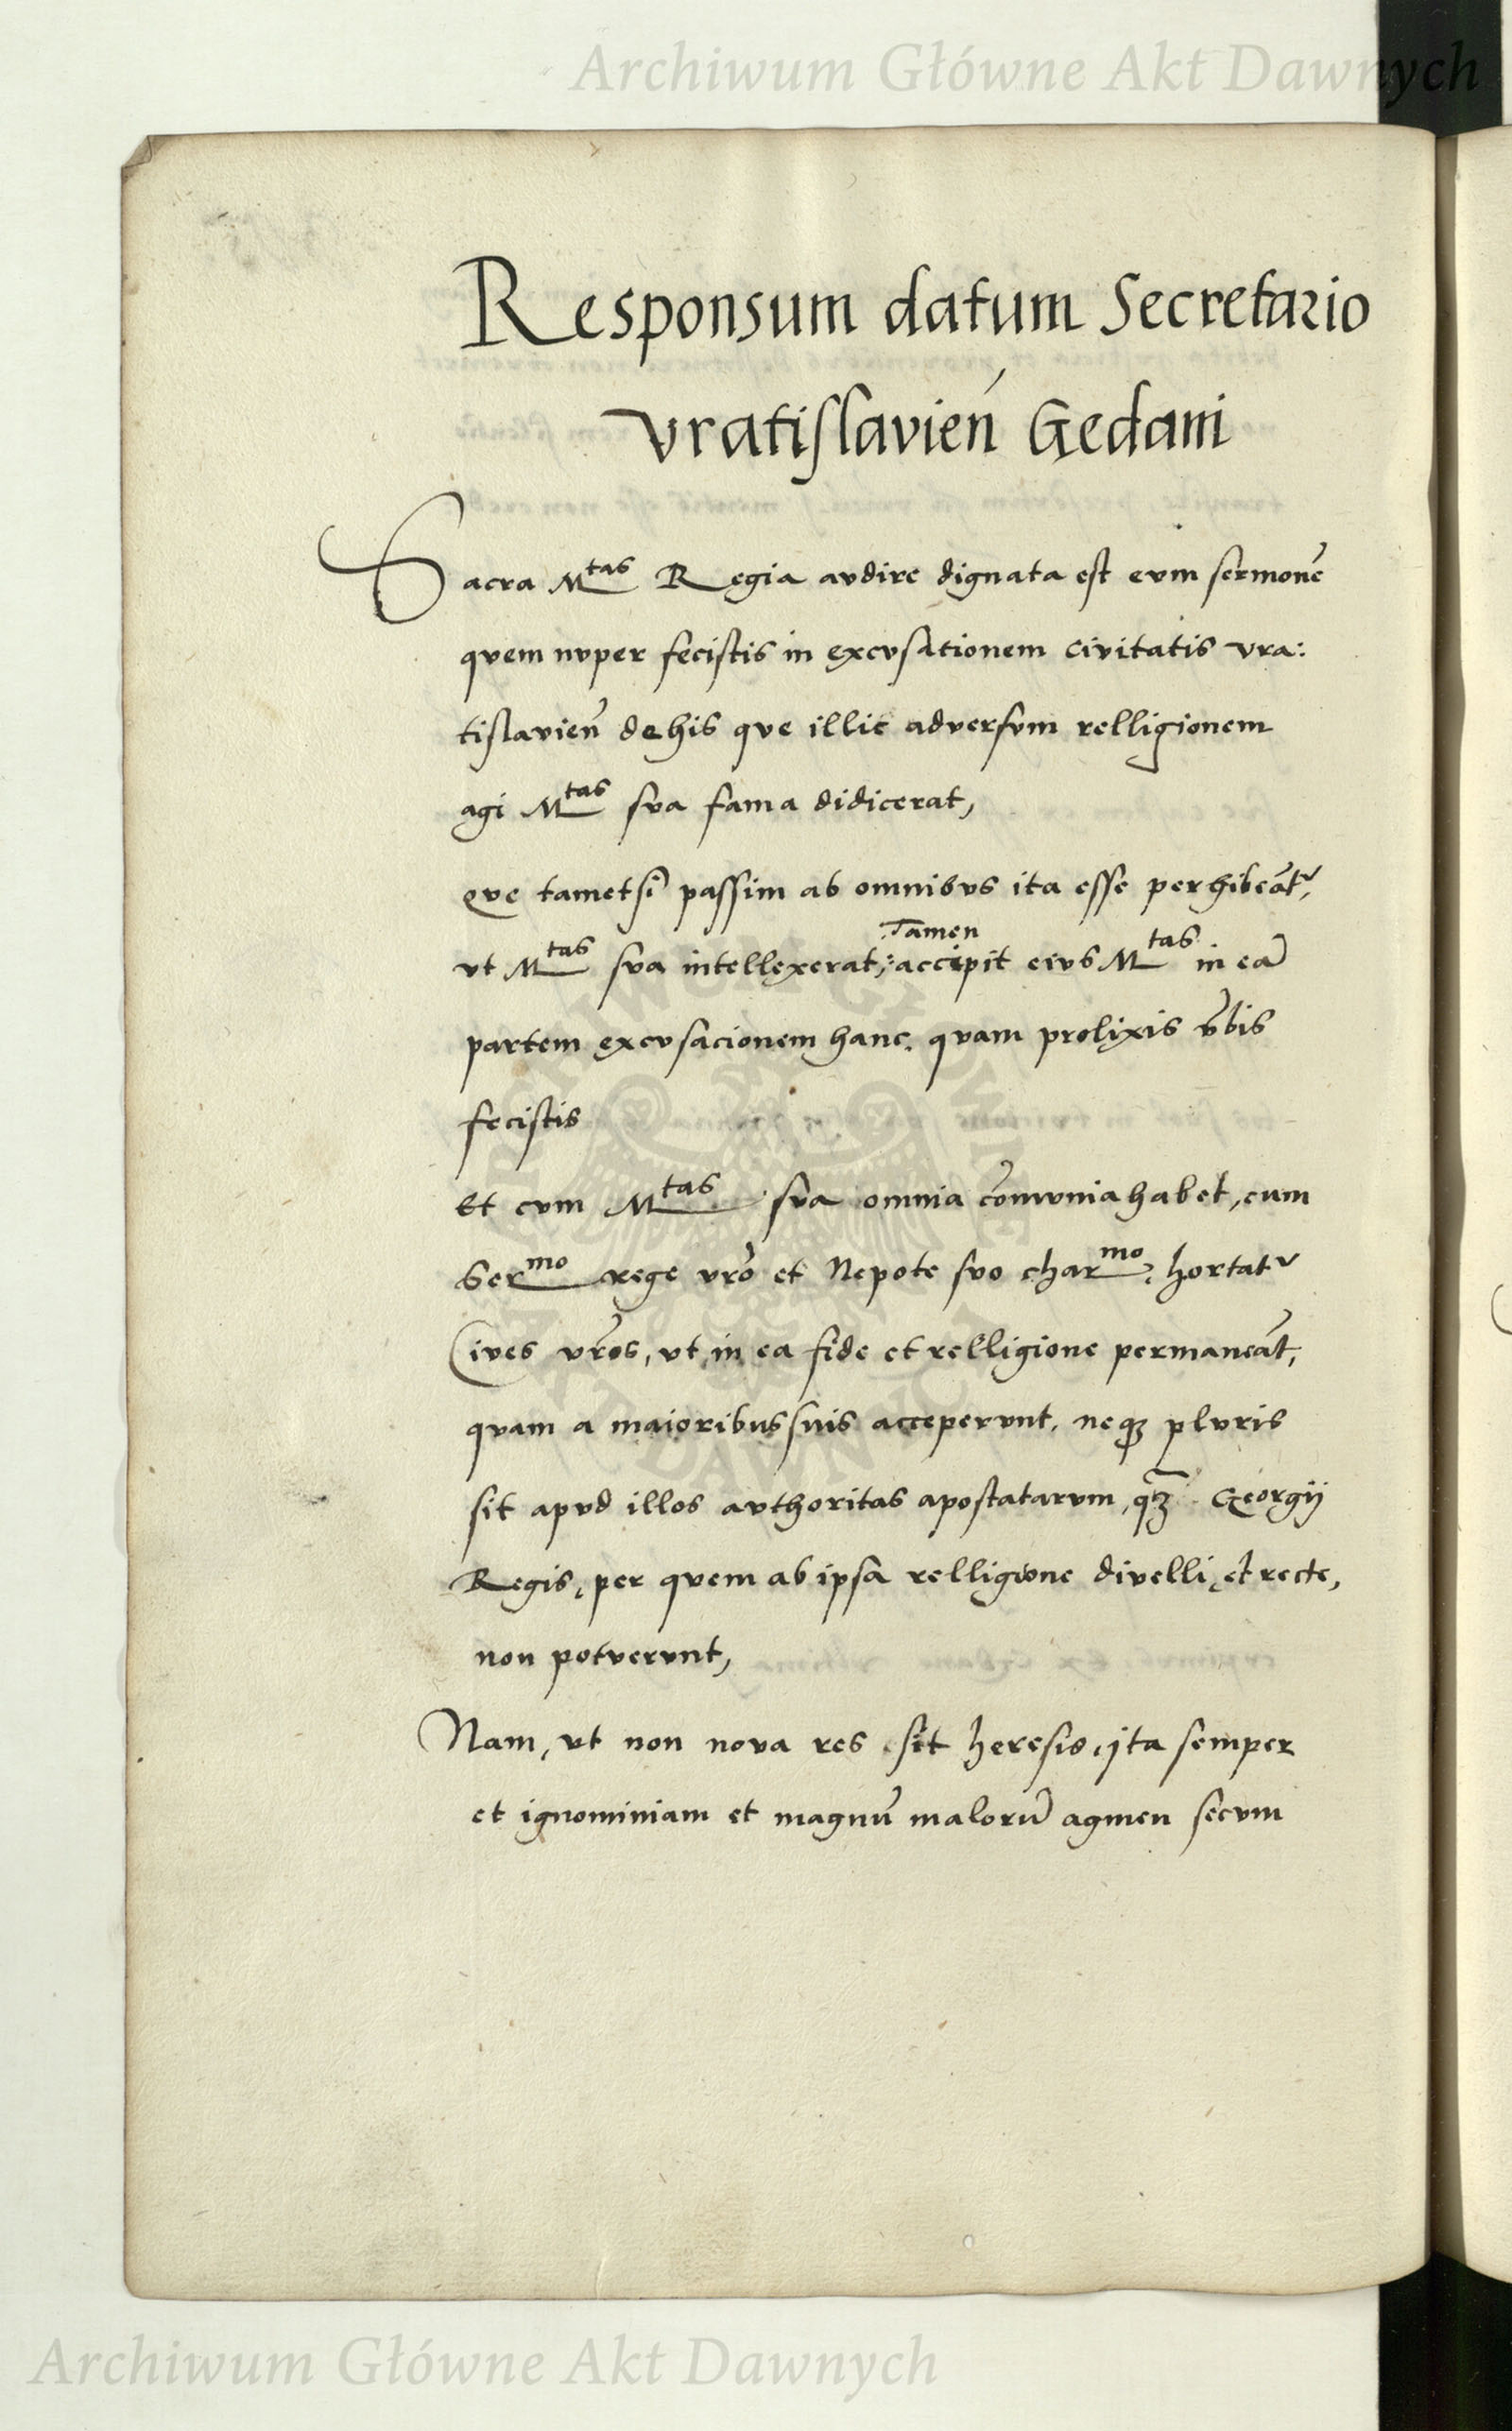 Archiwum Główne Akt Dawnych
Responsum datum Secretario
vratislavień Gedani
Sacra M^tas Regia avdire dignata est evm sermonē
qvem nvper fecistis in excvsationem civitatis vra:
tislavień de his qve illic adversvm relligionem
agi M^tas sva fama didicerat,
qve tametsi passim ab omnibvs ita esse perhibeāt^r,
Tamen
vt M^tas sva intellexerat, accipit eivs M^tas in eā
partem excvsacionem hanc, qvam prolixis v̄bis
fecistis
Et cvm M^tas sva omnia cōmvnia habet, cum
Ser^mo rege vr̄o et Nepote svo char^mo, hortat^r
Cives vr̄os, vt in ea fide et relligione permaneāt,
qvam a maioribus suis accepervnt, neqꝫ plvris
sit apvd illos avthoritas apostatarvm, qꝫ̄ Georgij
Regis, per qvem ab ipsa relligione divelli, et recte,
non potvervnt,
Nam, vt non nova res sit heresis, ita semper
et ignominiam et magnū malorū agmen secvm
ARCHIWUM GŁÓWNE AKT DAWNYCH
Archiwum Główne Akt Dawnych